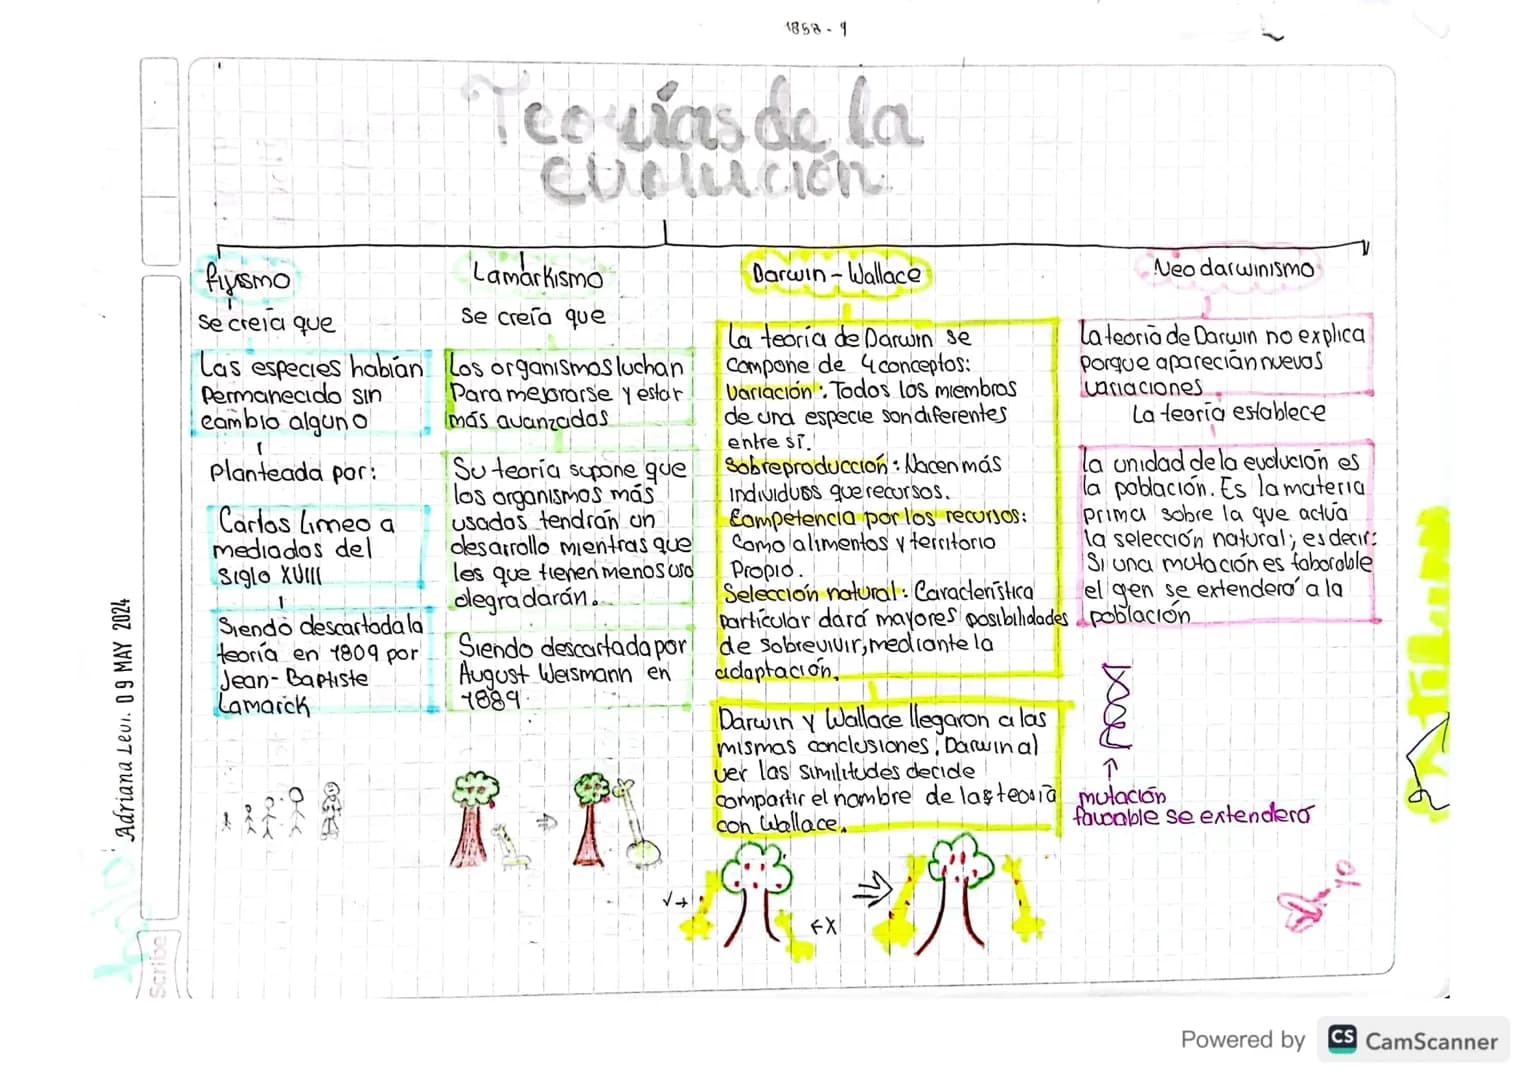 1858-9
Teorías de la
evolución
fijismo
se creía que
Las especies habían
Permanecido sin
cambio alguno
Planteada por:
Carlos Lineo a
mediados del
Siglo XVIII
Siendo descartada la
teoría en 1809 por
Jean-Baptiste
Lamarck
Lamarkismo
Se creía que
Los organismos luchan
Para mejorarse y estar
más avanzados
Su teoría supone que
los organismos más
usados tendrán un
desarrollo mientras que
les que tienen menos uso
degradarán.
Siendo descartada por
August Weismann en
1889.
Darwin - Wallace
La teoría de Darwin se
compone de 4 conceptos:
Variación: Todos los miembros
de una especie son diferentes
entre sí.
Sobreproducción: Nacen más
individuos que recursos.
Competencia por los recursos:
Como alimentos y territorio
Propio.
Selección natural: Característica
particular dará mayores posibilidades
de sobrevivir, mediante la
adaptación.
Darwin y Wallace llegaron a las
mismas conclusiones, Darwin al
ver las similitudes decide
compartir el nombre de las teoría
con Wallace.
Neodarwinismo
La teoría de Darwin no explica
porque aparecián nuevas
variaciones
La teoría establece
la unidad de la evolución es
la población. Es la materia
prima sobre la que actúa
la selección natural; es decir:
Si una mutación es faborable
el gen se extenderá a la
población
mutación
favorable se extenderá
yo
Adriana Levi. 09 MAY 2024
Scribe
Powered by CS CamScanner